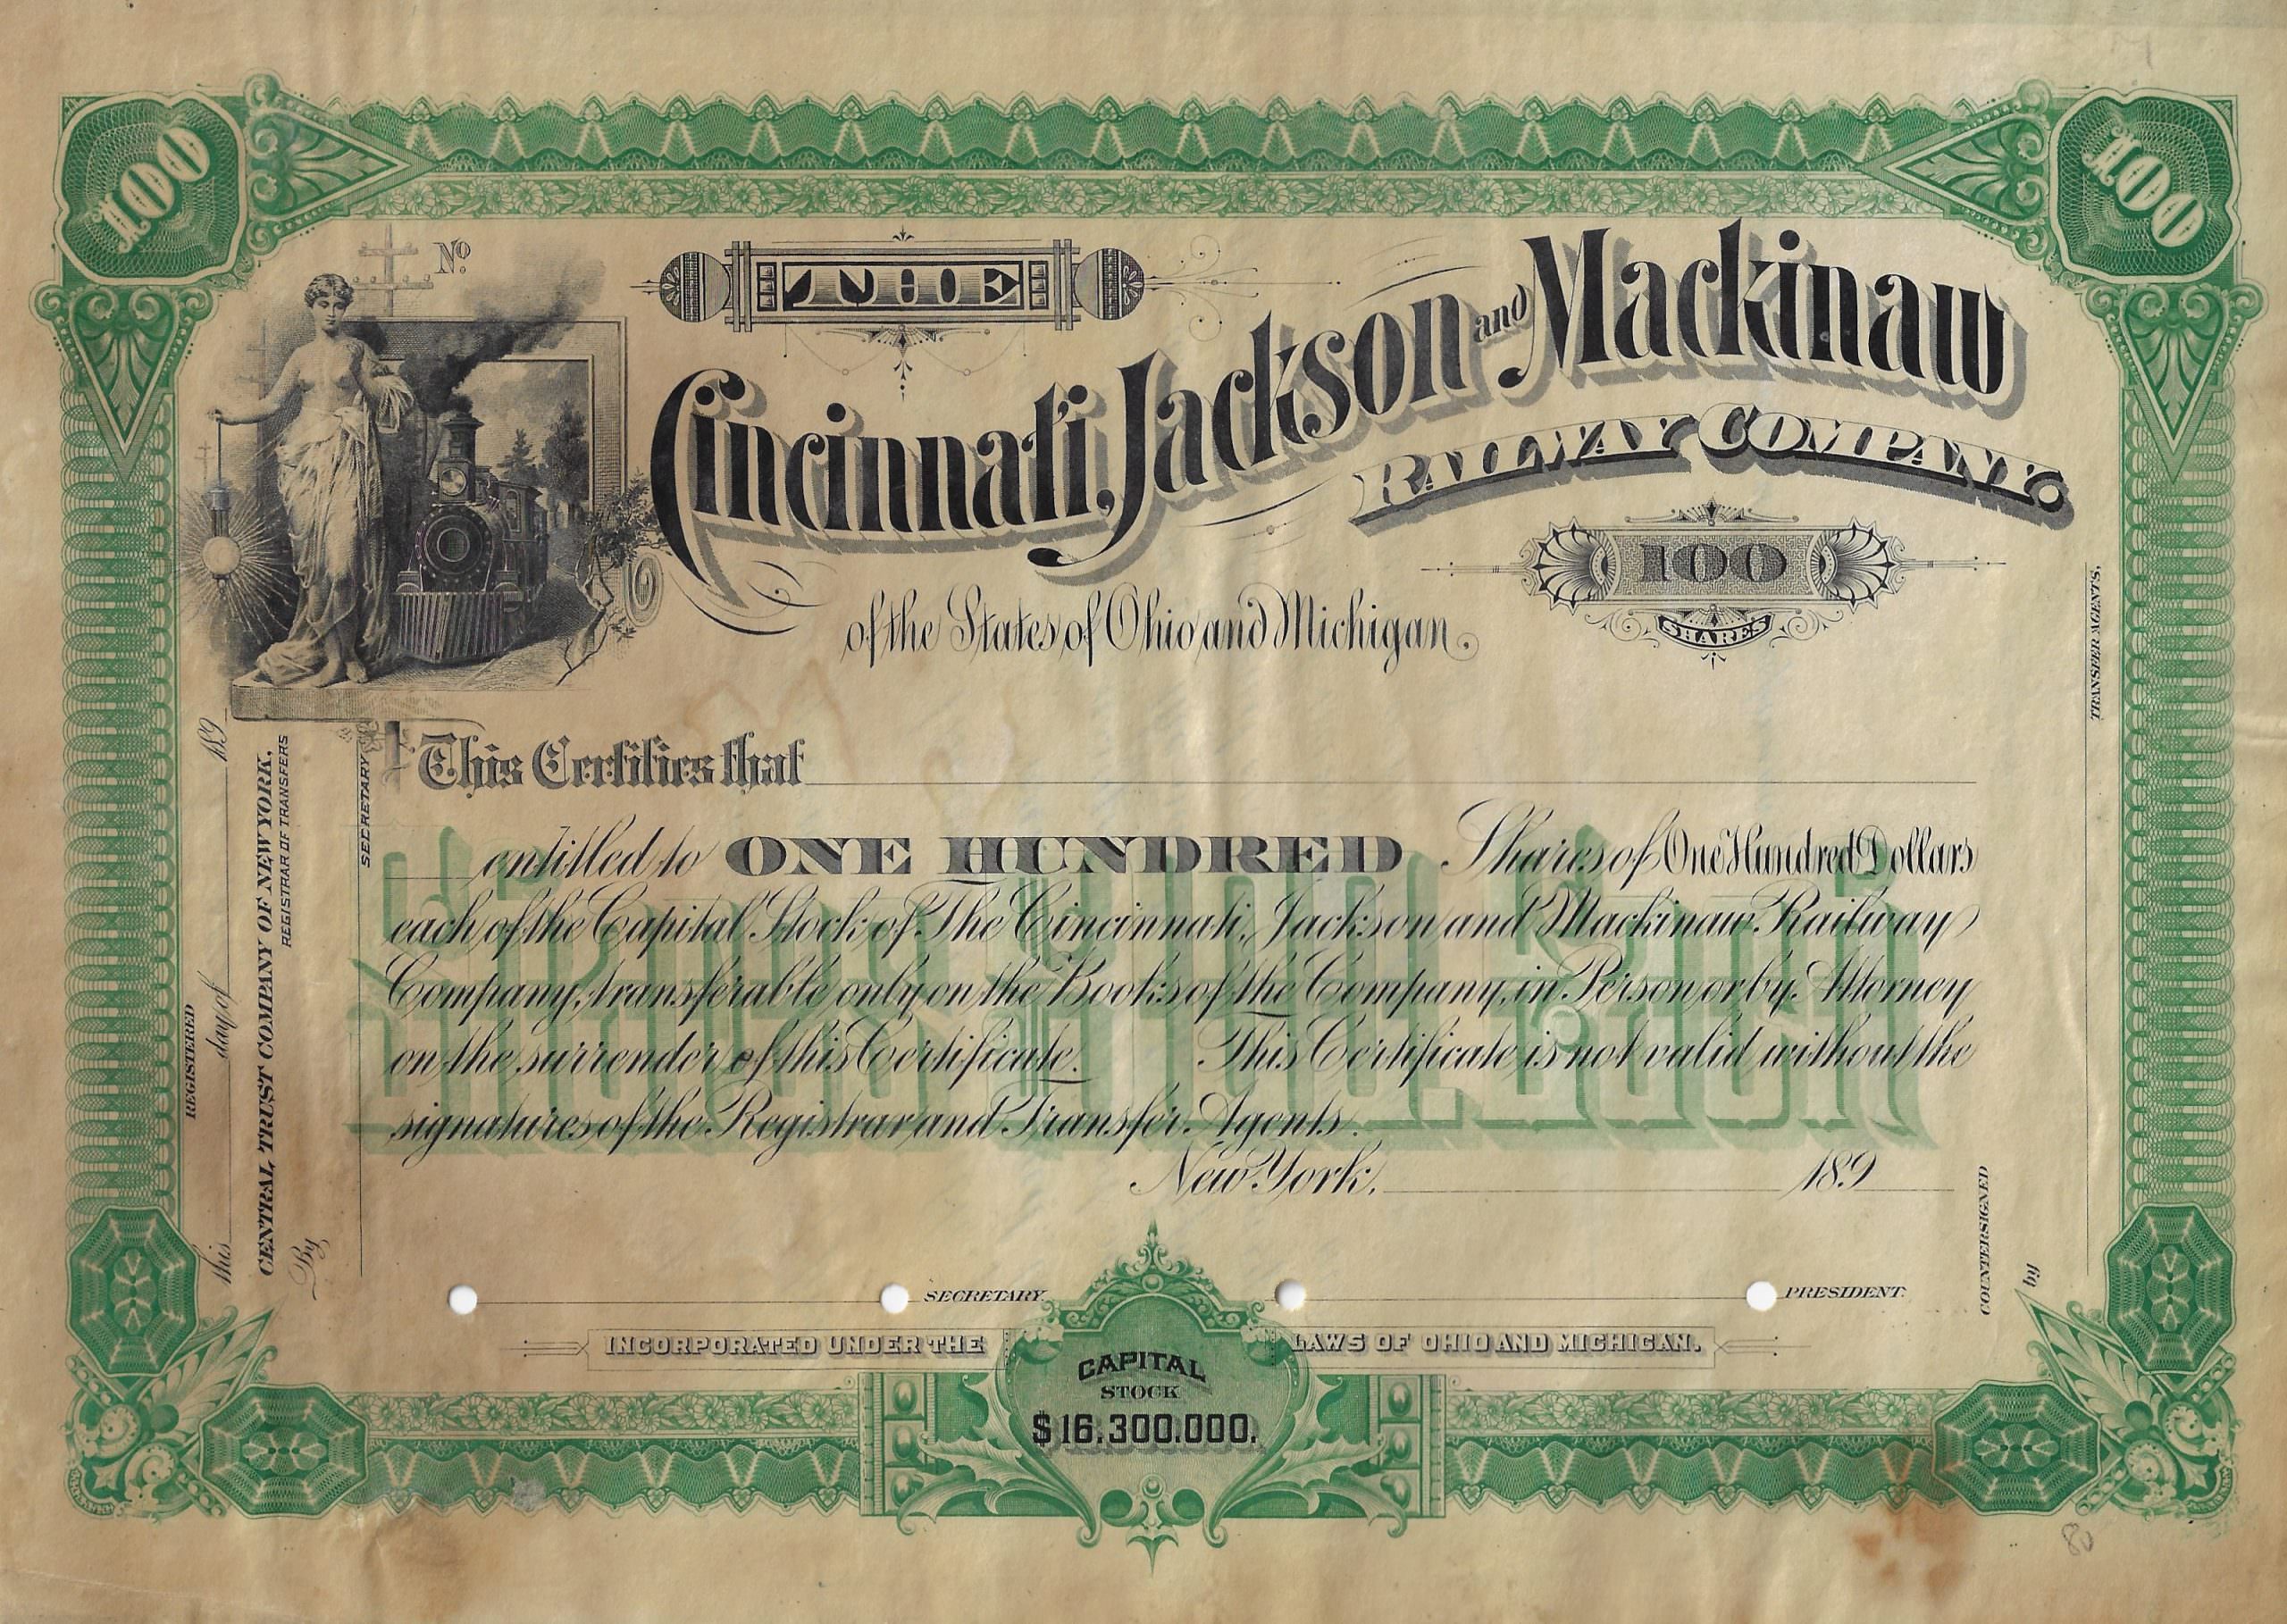 100
100
No.
THE
Cincinnati, Jackson and Mackinaw
RAILWAY COMPANY.
100
SHARES
of the States of Ohio and Michigan.
This Certifies that
entitled to ONE HUNDRED Shares of One Hundred Dollars
each of the Capital Stock of The Cincinnati, Jackson and Mackinaw Railway
Company, transferable only on the Books of the Company, in Person or by Attorney
on the surrender of this Certificate. This Certificate is not valid without the
signatures of the Registrar and Transfer Agents.
New York, 189
SECRETARY.
PRESIDENT.
INCORPORATED UNDER THE LAWS OF OHIO AND MICHIGAN.
CAPITAL
STOCK
$16.300.000.
REGISTERED
this day of 189
CENTRAL TRUST COMPANY OF NEW YORK,
REGISTRAR OF TRANSFERS
By
SECRETARY
COUNTERSIGNED
by
TRANSFER AGENTS,
80